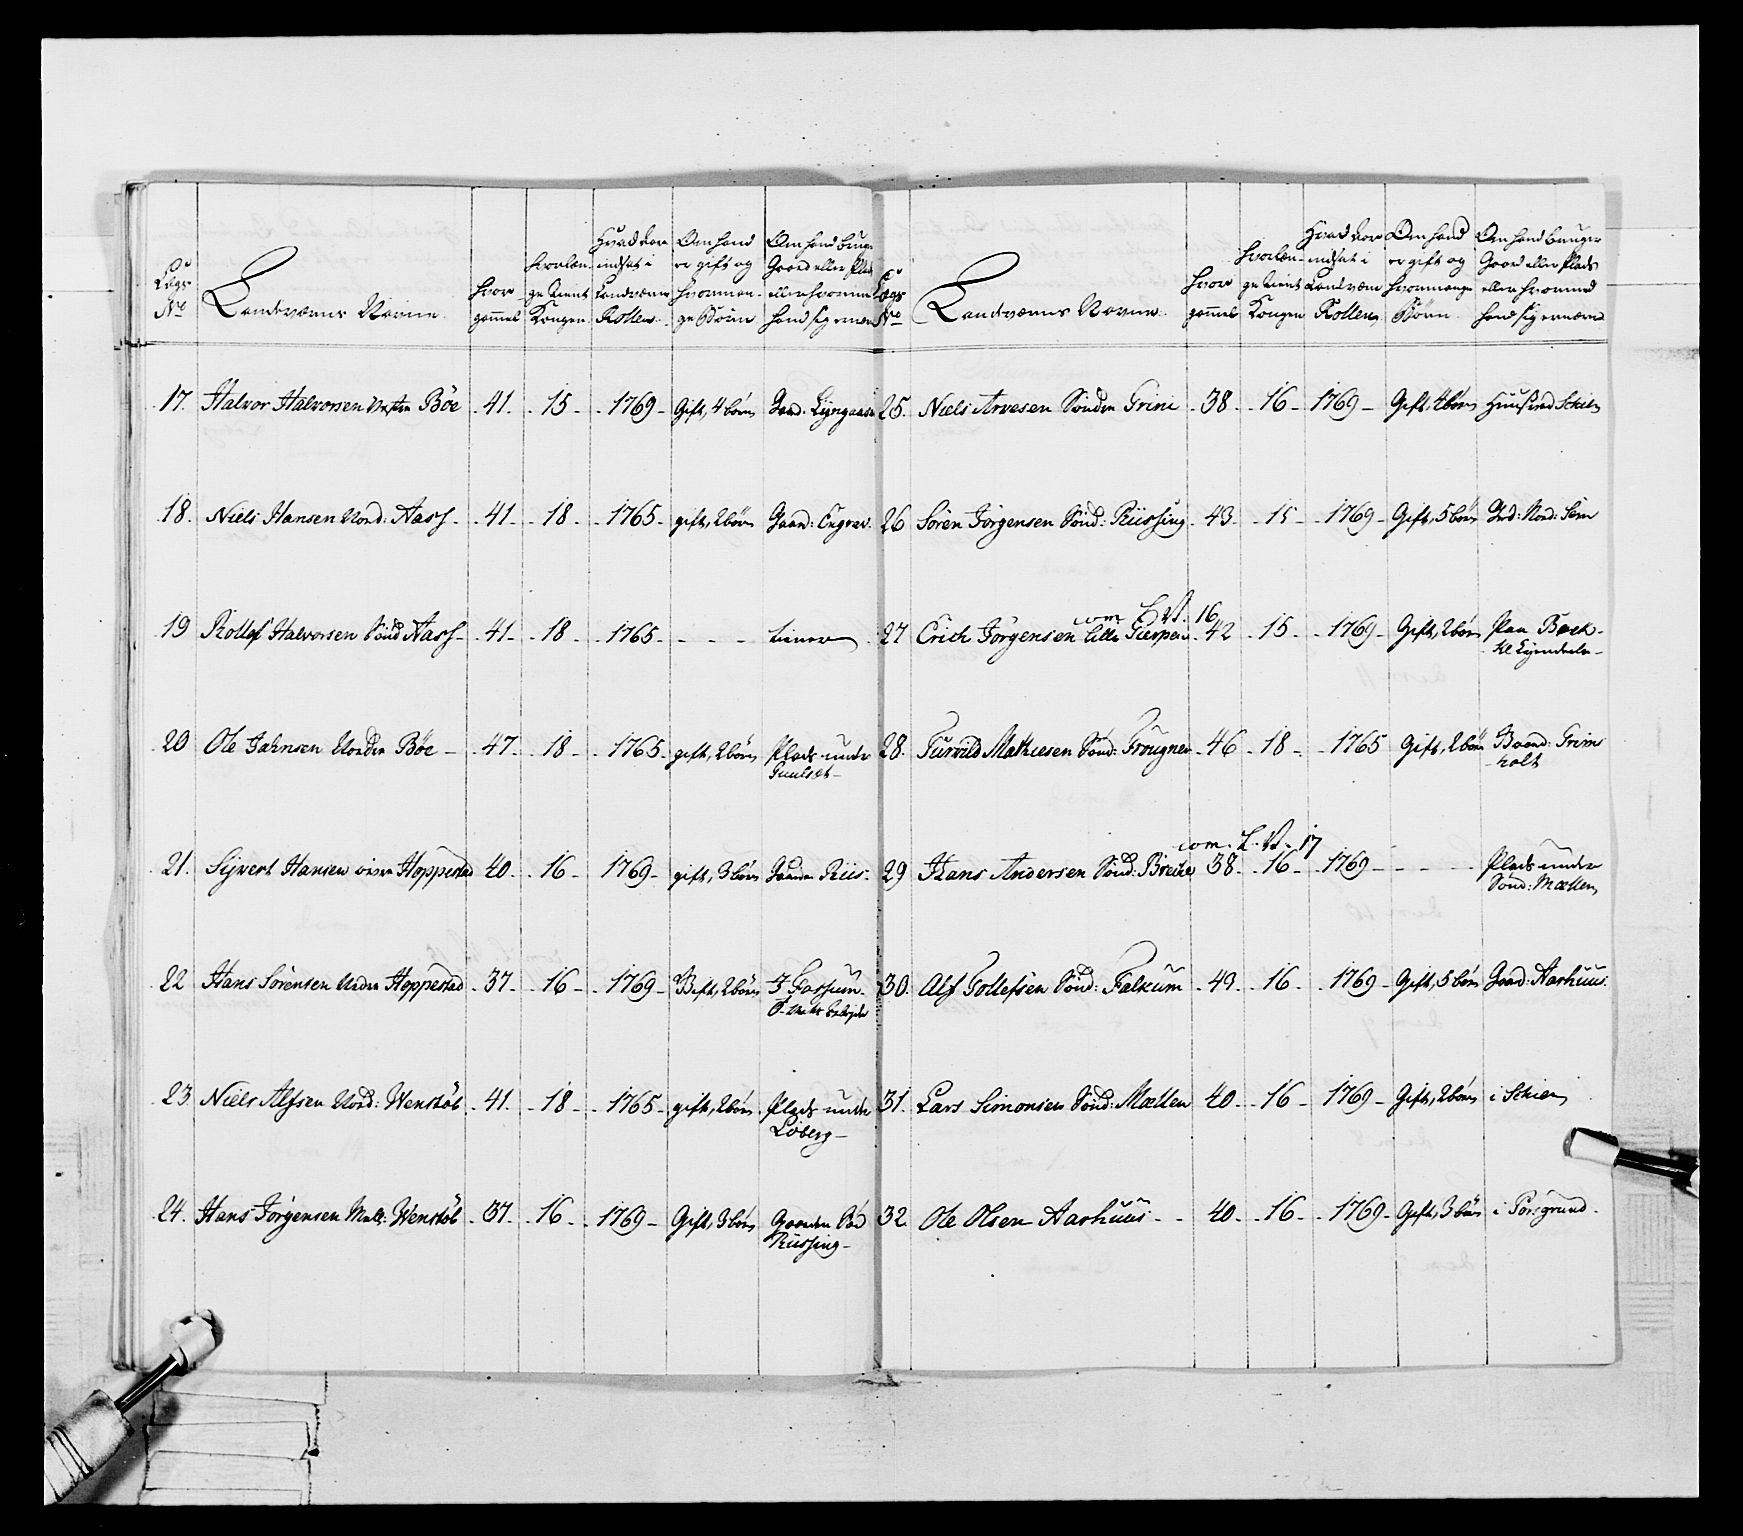 Lægs No
Landværns Navne
hvor gammel
hvorlænge tient Kongen
Hvad Aar indsat i Landværns Rollen
Om hand er gift og hvormange Börn
Om hand bruger Gaard eller Plads eller hvormed hand sig ernærer
17. Halvor Halvorsen Vestre Böe 41. 15 1769 Gift, 4 börn Gaard: Lyngaasen
18. Niels Hansen Nord: Aass 41 18 1765 gift, 2 börn Gaard:
19 Rollef Halvorsen Sönd Aass 41 18 1765 - - - tiener
20 Ole Jahnsen Nordre Böe 47 18 1765 gift, 2 börn Plads under
Guulset
21. Sijvert Hansen Hoppestad 40 16 1769 gift, 3 börn Gaarden Riis
22 Hans Sörensen Nedre Hoppestad 37 16 1769 Gift, 2 börn I Fossum
23 Niels Alfsen Nord: Wenstöb 41 18 1765 gift, 2 börn Plads under
Löberg
24. Hans Jörgensen Mell: Wenstöb 37 16 1769 Gift, 3 börn Gaarden Sönd
Riissing
Lægs No
Landværns Navne
hvor gammel
hvorlænge tient Kongen
Hvad Aar indsat i Landværn Rollen
Om hand er gift og hvormange Börn
Om hand bruger Gaard eller Plads eller hvormed hand sig ernærer
25. Niels Arvesen Söndre Grini 38 16 1769 Gift, 4 börn Schien
26 Sören Jörgensen Sönd: Riissing 43 15 1769 Gift, 5 börn Grd: Nord: Sem
com L. V. 16
27 Erich Jörgensen Lille Gierpen 42 15 1769 Gift, 2 börn Paa Bæk
28. Turvild Mathiesen Sönd: Frougner 46 18 1765 Gift, 2 börn Grim
holt
com. L. V. 17
29 Hans Andersen Sönd: Breche 38 16 1769 - - - Plads under
Sönd: Mællen
30. Alf Tollefsen Sönd: Falkum 49 16 1769 Gift, 5 börn Gaard: Aarhuus
31. Lars Simonsen Sönd: Mællen 40 16 1769 Gift, 2 börn i Schien
32. Ole Olsen Aarhuus 40 16 1769 Gift, 3 börn i Porsgrund